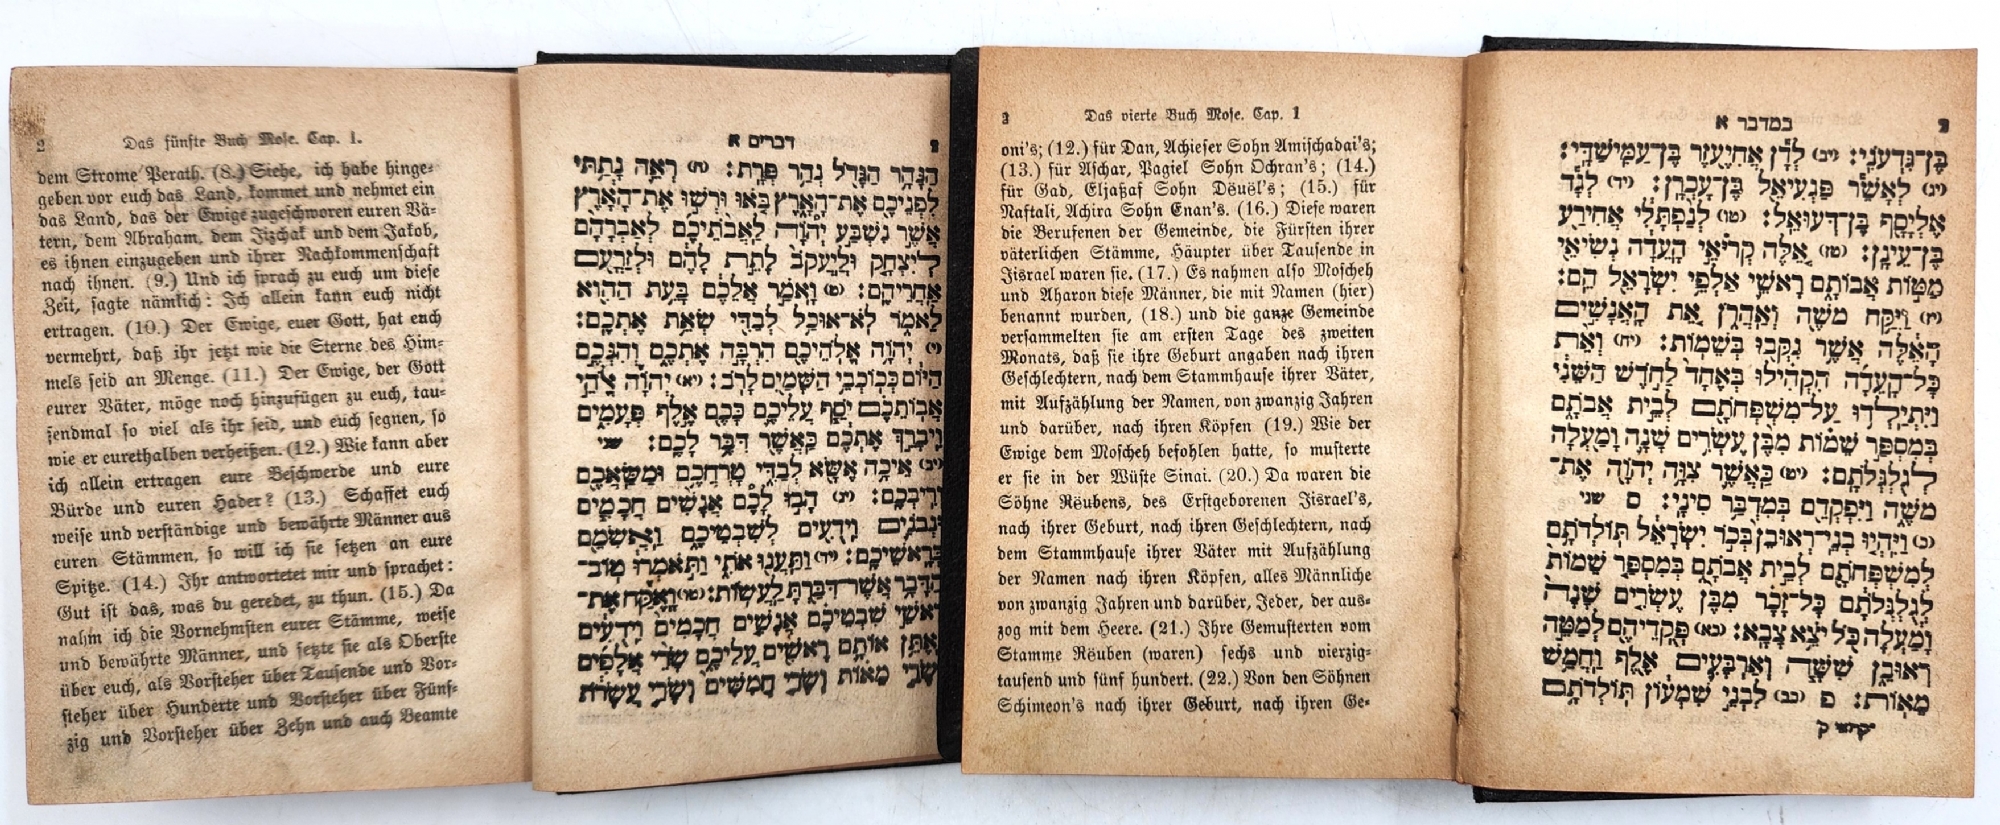 2
Das fünfte Buch Mose. Cap. 1.
dem Strome Perath. (8.) Siehe, ich habe hinge-
geben vor euch das Land, kommet und nehmet ein
das Land, das der Ewige zugeschworen euren Vä-
tern, dem Abraham, dem Jizchak und dem Jakob,
es ihnen einzugeben und ihrer Nachkommenschaft
nach ihnen. (9.) Und ich sprach zu euch um diese
Zeit, sagte nämlich: Ich allein kann euch nicht
ertragen. (10.) Der Ewige, euer Gott, hat euch
vermehrt, daß ihr jetzt wie die Sterne des Him-
mels seid an Menge. (11.) Der Ewige, der Gott
eurer Väter, möge noch hinzufügen zu euch, tau-
sendmal so viel als ihr seid, und euch segnen, so
wie er eurethalben verheißen. (12.) Wie kann aber
ich allein ertragen eure Beschwerde und eure
Bürde und euren Hader? (13.) Schaffet euch
weise und verständige und bewährte Männer aus
euren Stämmen, so will ich sie setzen an eure
Spitze. (14.) Ihr antwortetet mir und sprachet:
Gut ist das, was du geredet, zu thun. (15.) Da
nahm ich die Vornehmsten eurer Stämme, weise
und bewährte Männer, und setzte sie als Oberste
über euch, als Vorsteher über Tausende und Vor-
steher über Hunderte und Vorsteher über Fünf-
zig und Vorsteher über Zehn und auch Beamte
דברים א
הַנָּהָר הַגָּדֹל נְהַר פְּרָת: (ח) רְאֵה נָתַתִּי
לִפְנֵיכֶם אֶת־הָאָרֶץ בֹּאוּ וּרְשׁוּ אֶת־הָאָרֶץ
אֲשֶׁר נִשְׁבַּע יְהוָֹה לַאֲבֹתֵיכֶם לְאַבְרָהָם
לְיִצְחָק וּלְיַעֲקֹב לָתֵת לָהֶם וּלְזַרְעָם
אַחֲרֵיהֶם: (ט) וָאֹמַר אֲלֵכֶם בָּעֵת הַהִוא
לֵאמֹר לֹא־אוּכַל לְבַדִּי שְׂאֵת אֶתְכֶם:
(י) יְהוָֹה אֱלֹהֵיכֶם הִרְבָּה אֶתְכֶם וְהִנְּכֶם
הַיּוֹם כְּכוֹכְבֵי הַשָּׁמַיִם לָרֹב: (יא) יְהוָֹה אֱלֹהֵי
אֲבוֹתֵכֶם יֹסֵף עֲלֵיכֶם כָּכֶם אֶלֶף פְּעָמִים
וִיבָרֵךְ אֶתְכֶם כַּאֲשֶׁר דִּבֶּר לָכֶם: שני
(יב) אֵיכָה אֶשָּׂא לְבַדִּי טָרְחֲכֶם וּמַשַּׂאֲכֶם
וְרִיבְכֶם: (יג) הָבוּ לָכֶם אֲנָשִׁים חֲכָמִים
וּנְבֹנִים וִידֻעִים לְשִׁבְטֵיכֶם וַאֲשִׂימֵם
בְּרָאשֵׁיכֶם: (יד) וַתַּעֲנוּ אֹתִי וַתֹּאמְרוּ טוֹב־
הַדָּבָר אֲשֶׁר־דִּבַּרְתָּ לַעֲשׂוֹת: (טו) וָאֶקַּח אֶת־
רָאשֵׁי שִׁבְטֵיכֶם אֲנָשִׁים חֲכָמִים וִידֻעִים
וָאֶתֵּן אוֹתָם רָאשִׁים עֲלֵיכֶם שָׂרֵי אֲלָפִים
וְשָׂרֵי מֵאוֹת וְשָׂרֵי חֲמִשִּׁים וְשָׂרֵי עֲשָׂרֹת
Das vierte Buch Mose. Cap. 1
oni's; (12.) für Dan, Achieser Sohn Amischadai's;
(13.) für Aschar, Pagiel Sohn Ochran's; (14.)
für Gad, Eljaßaf Sohn Dëuël's; (15.) für
Naftali, Achira Sohn Enan's. (16.) Diese waren
die Berufenen der Gemeinde, die Fürsten ihrer
väterlichen Stämme, Häupter über Tausende in
Jisrael waren sie. (17.) Es nahmen also Moscheh
und Aharon diese Männer, die mit Namen (hier)
benannt wurden, (18.) und die ganze Gemeinde
versammelten sie am ersten Tage des zweiten
Monats, daß sie ihre Geburt angaben nach ihren
Geschlechtern, nach dem Stammhause ihrer Väter,
mit Aufzählung der Namen, von zwanzig Jahren
und darüber, nach ihren Köpfen (19.) Wie der
Ewige dem Moscheh befohlen hatte, so musterte
er sie in der Wüste Sinai. (20.) Da waren die
Söhne Rëubens, des Erstgeborenen Jisrael's,
nach ihrer Geburt, nach ihren Geschlechtern, nach
dem Stammhause ihrer Väter mit Aufzählung
der Namen nach ihren Köpfen, alles Männliche
von zwanzig Jahren und darüber, Jeder, der aus-
zog mit dem Heere. (21.) Ihre Gemusterten vom
Stamme Rëuben (waren) sechs und vierzig-
tausend und fünf hundert. (22.) Von den Söhnen
Schimeon's nach ihrer Geburt, nach ihren Ge-
במדבר א
בֶּן־גִּדְעֹנִי: (יב) לְדָן אֲחִיעֶזֶר בֶּן־עַמִּישַׁדָּי:
(יג) לְאָשֵׁר פַּגְעִיאֵל בֶּן־עָכְרָן: (יד) לְגָד
אֶלְיָסָף בֶּן־דְּעוּאֵל: (טו) לְנַפְתָּלִי אֲחִירַע
בֶּן־עֵינָן: (טז) אֵלֶּה קְרִיאֵי הָעֵדָה נְשִׂיאֵי
מַטּוֹת אֲבוֹתָם רָאשֵׁי אַלְפֵי יִשְׂרָאֵל הֵם:
(יז) וַיִּקַּח מֹשֶׁה וְאַהֲרֹן אֵת הָאֲנָשִׁים
הָאֵלֶּה אֲשֶׁר נִקְּבוּ בְּשֵׁמוֹת: (יח) וְאֵת
כָּל־הָעֵדָה הִקְהִילוּ בְּאֶחָד לַחֹדֶשׁ הַשֵּׁנִי
וַיִּתְיַלְדוּ עַל־מִשְׁפְּחֹתָם לְבֵית אֲבֹתָם
בְּמִסְפַּר שֵׁמוֹת מִבֶּן עֶשְׂרִים שָׁנָה וָמַעְלָה
לְגֻלְגְּלֹתָם: (יט) כַּאֲשֶׁר צִוָּה יְהוָֹה אֶת־
מֹשֶׁה וַיִּפְקְדֵם בְּמִדְבַּר סִינָי: ס שני
(כ) וַיִּהְיוּ בְנֵי־רְאוּבֵן בְּכֹר יִשְׂרָאֵל תּוֹלְדֹתָם
לְמִשְׁפְּחֹתָם לְבֵית אֲבֹתָם בְּמִסְפַּר שֵׁמוֹת
לְגֻלְגְּלֹתָם כָּל־זָכָר מִבֶּן עֶשְׂרִים שָׁנָה
וָמַעְלָה כֹּל יֹצֵא צָבָא: (כא) פְּקֻדֵיהֶם לְמַטֵּה
רְאוּבֵן שִׁשָּׁה וְאַרְבָּעִים אֶלֶף וַחֲמֵשׁ
מֵאוֹת: פ (כב) לִבְנֵי שִׁמְעוֹן תּוֹלְדֹתָם